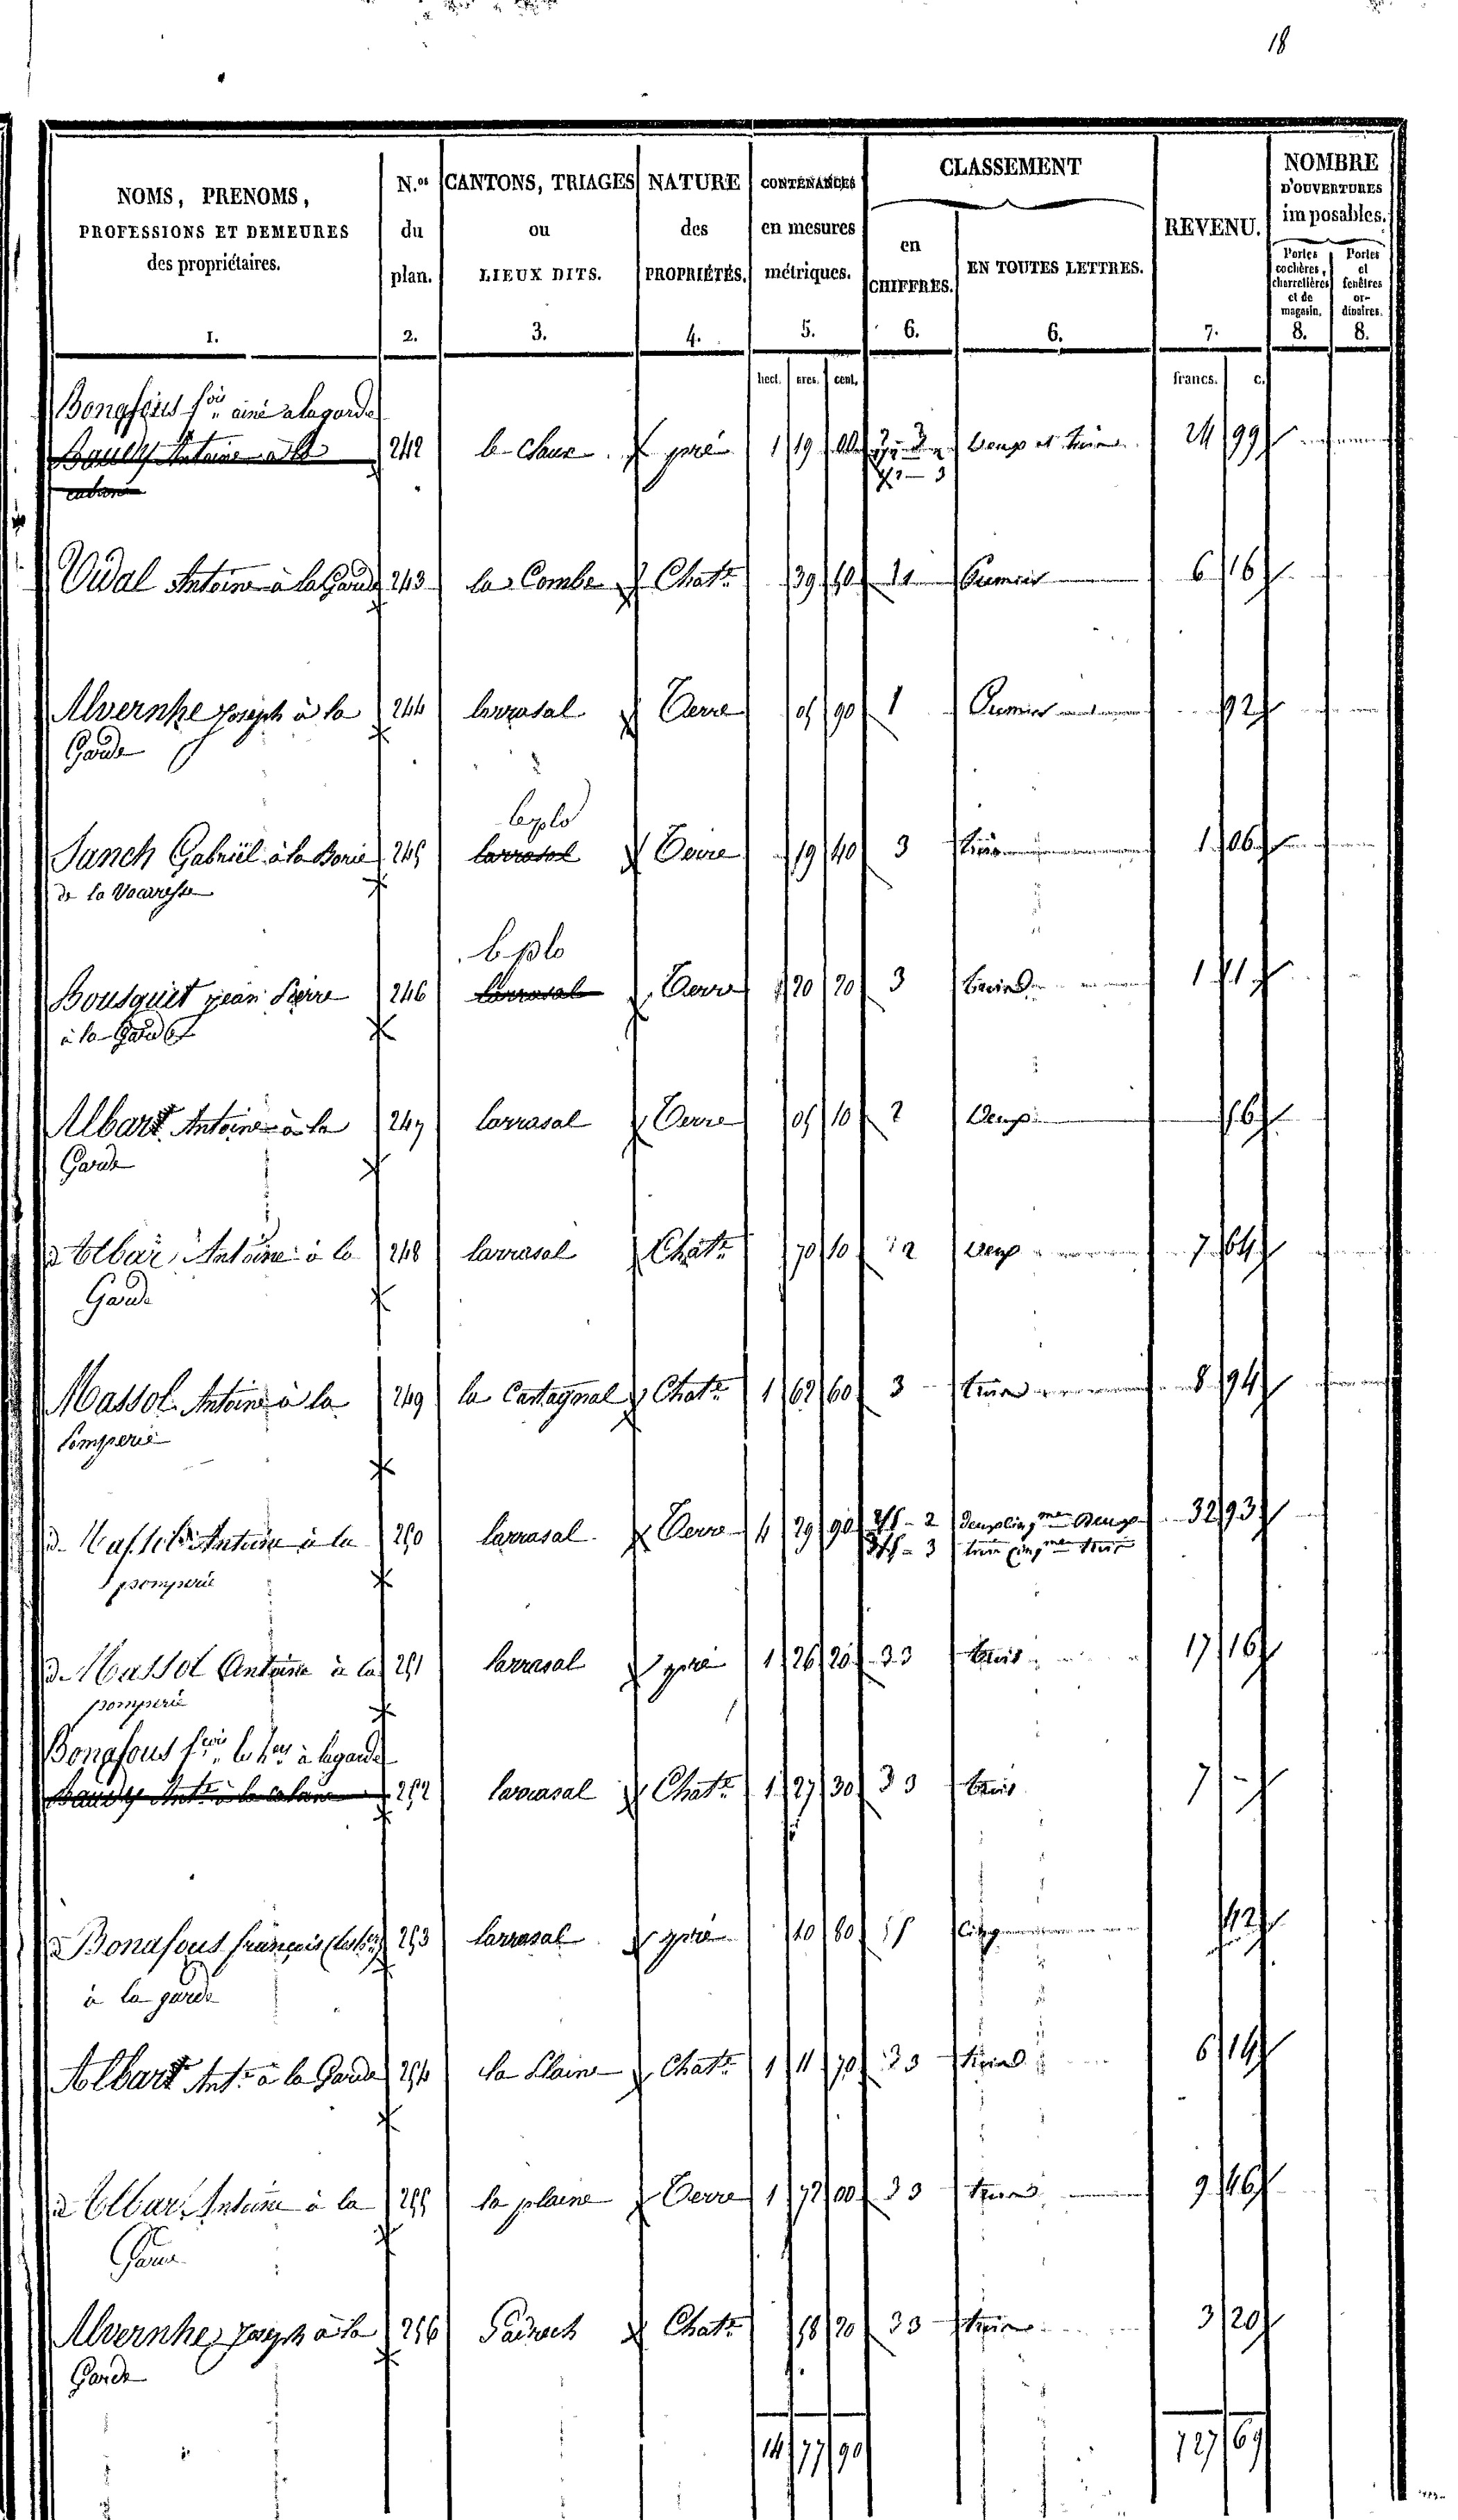 18
NOMS, PRENOMS,
PROFESSIONS ET DEMEURES
des propriétaires.
1.
N.os
du
plan.
2.
CANTONS, TRIAGES
ou
LIEUX DITS.
3.
NATURE
des
PROPRIÉTÉS.
4.
CONTENANCES
en mesures
métriques.
5.
CLASSEMENT
en
CHIFFRES.
6.
EN TOUTES LETTRES.
6.
REVENU.
7.
NOMBRE
D'OUVERTURES
imposables.
Portes
cochères,
charretières
et de
magasin.
8.
Portes
et
fenêtres
or-
dinaires.
8.
hect. ares. cent. francs. c.
Bonafous f.ois ainé a lagarde
Antoine 242 le Claux pré 1 19 deux et trois 24 99
Vidal Antoine à la Garde 243 la Combe Chat.r 39 1 Premier 6 16
Alvernhe Joseph à la 244 larrasal Terre 05 90 1 Premier 92
Garde
leplo
Sanch Gabriël à la Borie 245 larrasal Terre 19 40 3 trois 1 06
de la
leplo
Bousquet jean Pierre 246 larrasal Terre 20 20 3 trois 1 11
à la Garde
Albart Antoine à la 247 larrasal Terre 05 10 2 Deux 56
Garde
d. Albar Antoine à la 248 larrasal Chat.r 70 10 2 deux 7 64
Garde
Massol Antoine à la 249 la Castagnal Chat.r 1 62 60 3 trois 8 94
Pomperie
d. Massol Antoine à la 250 larrasal Terre 4 29 90 2/5 - 2 deux cinq.me deux 32 93
pomperie 3/5 - 3 trois cinq.me trois
d. Massol Antoine à la 251 larrasal pré 1 26 20 3 trois 17 16
pomperie
Bonafous f.ois les h.ers à lagarde
Ant.e à la 252 larrasal Chat.r 1 27 30 3 trois 7 -
d. Bonafous françois (les h.ers) 253 larrasal pré 10 80 5 Cinq 42
à la garde
Albart Ant.e à la Garde 254 la Plaine Chat.r 1 11 70 3 trois 6 14
d. Albar Antoine à la 255 la plaine Terre 1 72 00 3 trois 9 46
Garde
Alvernhe Joseph à la 256 Chat.r 58 20 3 trois 3 20
Garde
14 77 90 127 69